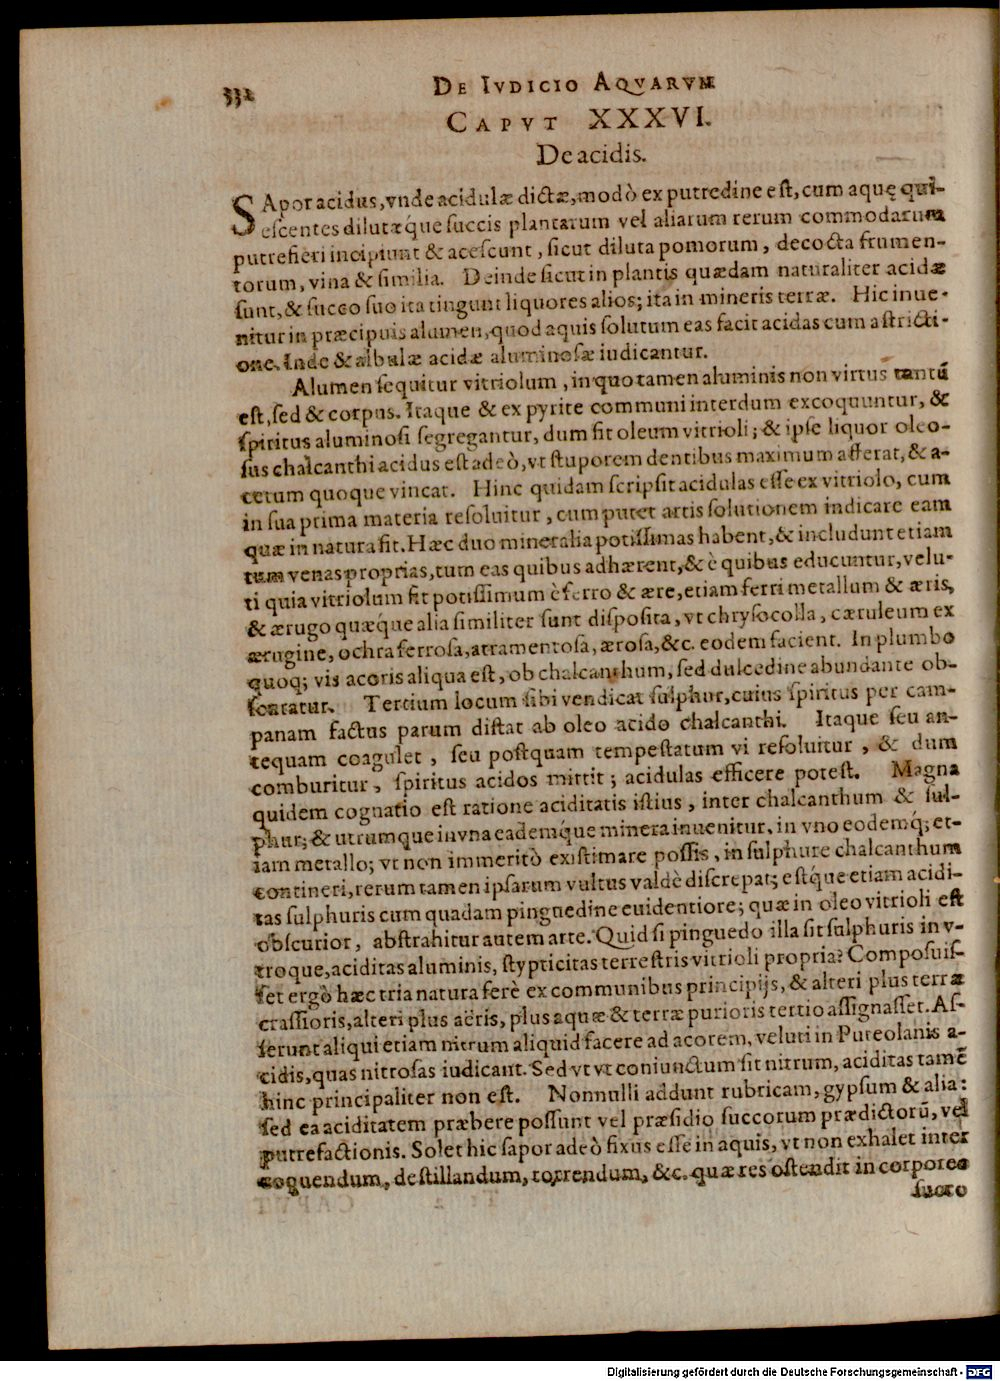 332 DE IVDICIO AQVARVM
CAPVT XXXVI.
De acidis.
SApor acidus, vnde acidulæ dictæ, modò ex putredine est, cum aquę qui-
escentes dilutæq́ue succis plantarum vel aliarum rerum commodarum
putrefieri incipiunt & acescunt, sicut diluta pomorum, decocta frumen-
torum, vina & similia. Deinde sicut in plantis quædam naturaliter acidæ
sunt, & succo suo ita tingunt liquores alios; ita in mineris terræ. Hic inue-
nitur in præcipuis alumen, quod aquis solutum eas facit acidas cum astricti-
one. Inde & albulæ acidæ aluminosæ iudicantur.
Alumen sequitur vitriolum, in quo tamen aluminis non virtus tantũ
est, sed & corpus. Itaque & ex pyrite communi interdum excoquuntur, &
spiritus aluminosi segregantur, dum fit oleum vitrioli; & ipse liquor oleo-
sus chalcanthi acidus est adeò, vt stuporem dentibus maximum afferat, & a-
cetum quoque vincat. Hinc quidam scripsit acidulas esse ex vitriolo, cum
in sua prima materia resoluitur, cum putet artis solutionem indicare eam
quæ in natura fit. Hæc duo mineralia potissimas habent, & includunt etiam
tum venas proprias, tum eas quibus adhærent, & è quibus educuntur, velu-
ti quia vitriolum fit potissimum è ferro & ære, etiam ferri metallum & æris,
& ærugo quæq́ue alia similiter sunt disposita, vt chrysocolla, cæruleum ex
ærugine, ochra ferrosa, atramentosa, ærosa, &c. eodem facient. In plumbo
quoq; vis acoris aliqua est, ob chalcanthum, sed dulcedine abundante ob-
scuratur. Tertium locum sibi vendicat sulphur, cuius spiritus per cam-
panam factus parum distat ab oleo acido chalcanthi. Itaque seu an-
tequam coagulet, seu postquam tempestatum vi resoluitur, & dum
comburitur, spiritus acidos mittit; acidulas efficere potest. Magna
quidem cognatio est ratione aciditatis istius, inter chalcanthum & sul-
phur; & utrumque in vna eademq́ue minera inuenitur, in vno eodemq́; et-
iam metallo; vt non immeritò existimare possis, in sulphure chalcanthum
contineri, rerum tamen ipsarum vultus valdè discrepat; estq́ue etiam acidi-
tas sulphuris cum quadam pinguedine euidentiore; quæ in oleo vitrioli est
obscurior, abstrahitur autem arte. Quid si pinguedo illa sit sulphuris in v-
troque, aciditas aluminis, stypticitas terrestris vitrioli propria? Composuis-
set ergò hæc tria natura ferè ex communibus principijs, & alteri plus terræ
crassioris, alteri plus aëris, plus aquæ & terræ purioris tertio assignasset. As-
serunt aliqui etiam nitrum aliquid facere ad acorem, veluti in Puteolanis a-
cidis, quas nitrosas iudicant. Sed vt vt coniunctum sit nitrum, aciditas tamẽ
hinc principaliter non est. Nonnulli addunt rubricam, gypsum & alia:
sed ea aciditatem præbere possunt vel præsidio succorum prædictorũ, vel
putrefactionis. Solet hic sapor adeò fixus esse in aquis, vt non exhalet inter
coquendum, destillandum, torrendum, &c. quæ res ostendit in corporeo
succo
Digitalisierung gefördert durch die Deutsche Forschungsgemeinschaft - DFG